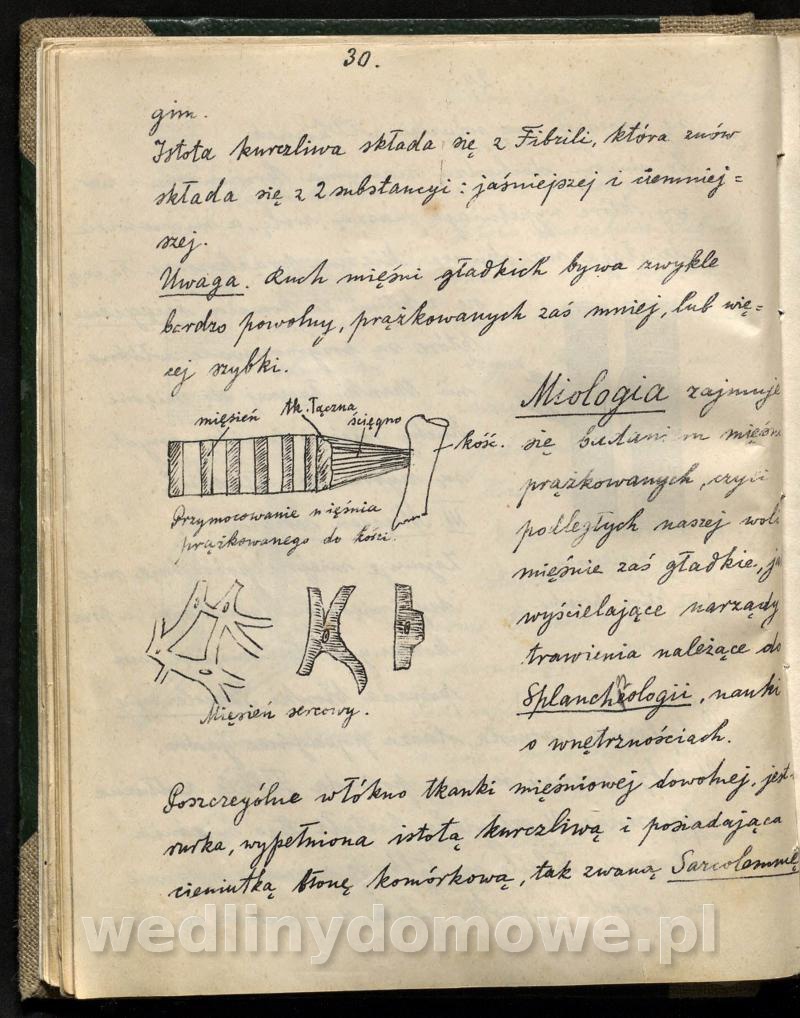 30.
gim.
Istota kurczliwa składa się z Fibrili, która znów
składa się z 2 substancyi: jaśniejszej i ciemniej=
szej.
Uwaga. Ruch mięśni gładkich bywa zwykle
bardzo powolny, prążkowanych zaś mniej, lub wię=
cej szybki.
mięsień
tk. łączna
ścięgno
kość.
Przymocowanie mięśnia
prążkowanego do kości.
Mięsień sercowy.
Miologia zajmuje
się badaniem mięśni
prążkowanych, czyli
podległych naszej woli
mięśnie zaś gładkie, ja
wyścielające narządy
trawienia należące do
Splanchnologii, nauki
o wnętrznościach.
Poszczególne włókno tkanki mięśniowej dowolnej, jest
rurka, wypełniona istotą kurczliwą i posiadająca
cieniutką błonę komórkową, tak zwaną Sarcolemmę
wedlinydomowe.pl